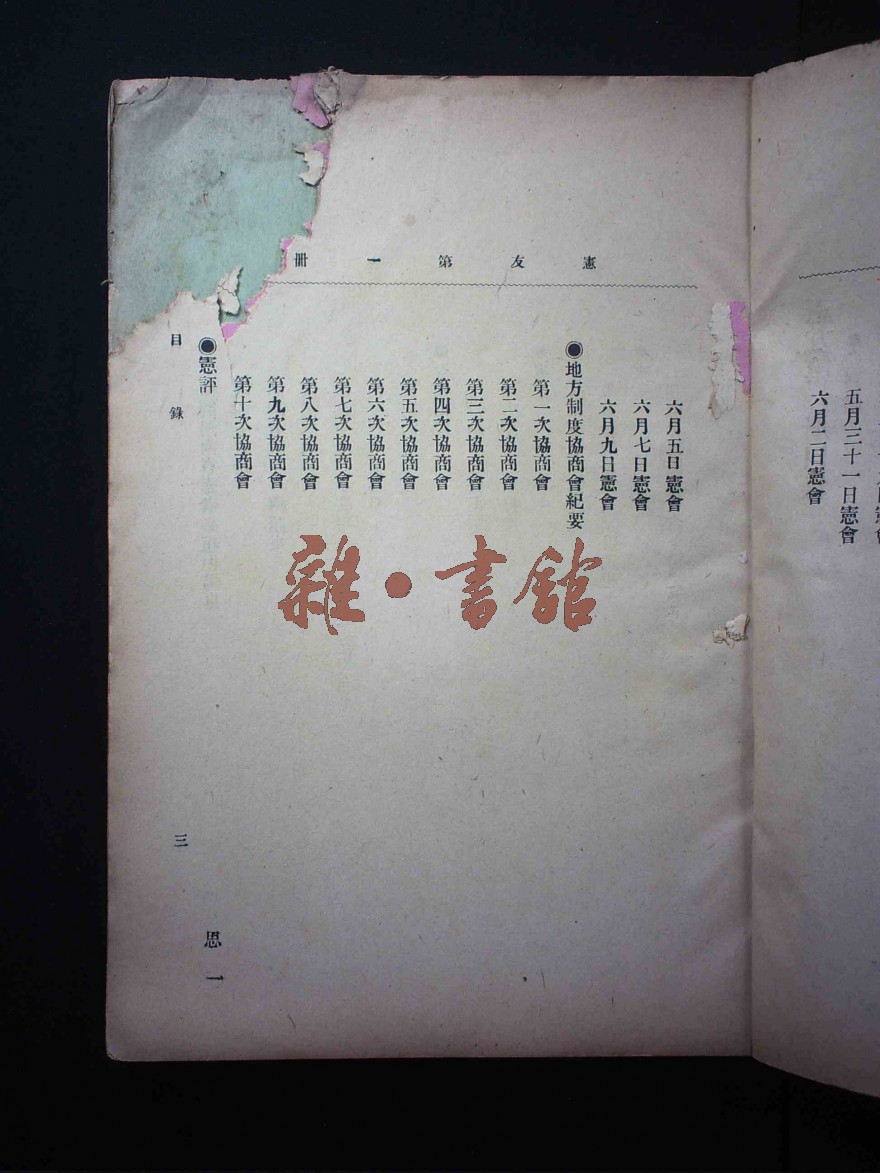 五月三十一日憲會
六月二日憲會
憲友第一冊
六月五日憲會
六月七日憲會
六月九日憲會
◉地方制度協商會紀要
第一次協商會
第二次協商會
第三次協商會
第四次協商會
第五次協商會
第六次協商會
第七次協商會
第八次協商會
第九次協商會
第十次協商會
◉憲評
思一
目錄
三
雜・書館